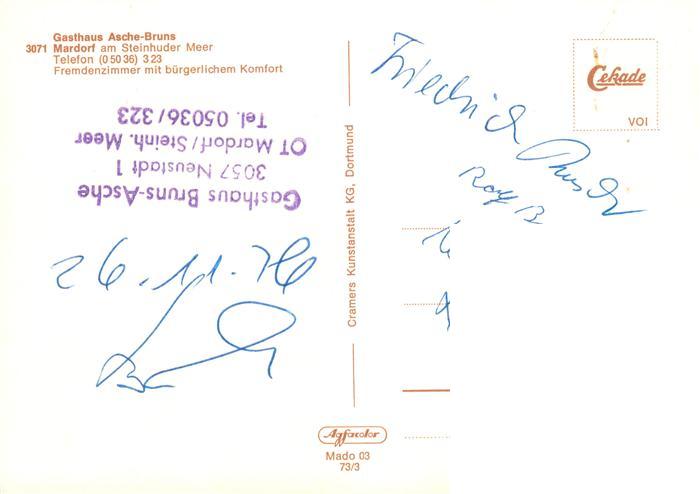 Gasthaus Asche-Bruns
3071 Mardorf am Steinhuder Meer
Telefon (0 50 36) 3 23
Fremdenzimmer mit bürgerlichem Komfort
Gasthaus Bruns-Asche
3057 Neustadt 1
OT Mardorf/Steinh. Meer
Tel. 05036/323
26.11.76
Cramers Kunstanstalt KG, Dortmund
Friedrich
Rolf B
Cekade
VOI
Agfacolor
Mado 03
73/3